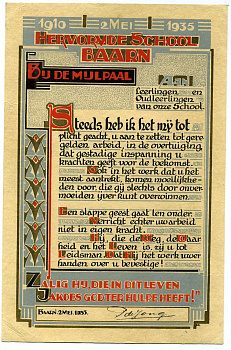 1910 2 MEI 1935
HERVORMDE SCHOOL
BAARN
BIJ DE MIJLPAAL
AAN
leerlingen en
Oudleerlingen van
onze School.
Steeds heb ik het mij tot
plicht geacht, u aan te zetten tot gere-
gelden arbeid, in de overtuiging,
dat gestadige inspanning u
krachten geeft voor de toekomst.
Ook in het werk dat u het
meest aantrekt, komen moeilijkhe-
den voor, die gij slechts door onver-
moeiden ijver kunt overwinnen.
Een slappe geest gaat ten onder.
Verricht echter uw arbeid
niet in eigen kracht.
Hij, die de Weg, de Waar
heid en het Leven is, zij u tot
Leidsman. Dat Hij het werk uwer
handen over u bevestige!
ZALIG HIJ, DIE IN DIT LEVEN
JAKOBS GOD TER HULPE HEEFT!"
BAARN, 2 MEI 1935.